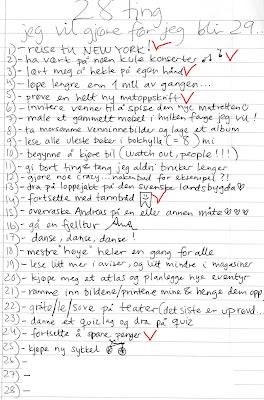 28 ting
jeg vil gjøre før jeg blir 29...
1) - reise til NEW YORK!
2) - ha vært på noen kule konserter
3) - lært meg å hekle på egen hånd
4) - løpe lengre enn 1 mil av gangen...
5) - prøve en helt ny matoppskrift
6) - invitere venner til å spise den nye matretten
7) - male et gammelt møbel i hvilken farge jeg vil!
8) - ta morsomme venninnebilder og lage et album
9) - lese alle uleste bøker i bokhylla (= 8) mi
10) - begynne å kjøre bil (watch out, people!!!)
11) - gi bort ting & tøy jeg aldri bruker lenger
12) - gjøre noe crazy... nakenbad for eksempel?!
13) - dra på loppejakt på den svenske landsbygda
14) - fortsette med tanntråd
15) - overraske Andreas på en eller annen måte
16) - gå en fjelltur
17) - danse, danse, danse!
18) - mestre høye hæler en gang for alle
19) - lese litt mer i aviser, og litt mindre i magasiner
20) - kjøpe meg et atlas og planlegge nye eventyr
21) - ramme inn bildene/printene mine & henge dem opp
22) - gråte/le/sove på teater (det siste er uprøvd...
23) - danne et quizlag og dra på quiz
24) - fortsette å spare penger
25) - kjøpe ny sykkel
26) -
27) -
28) -